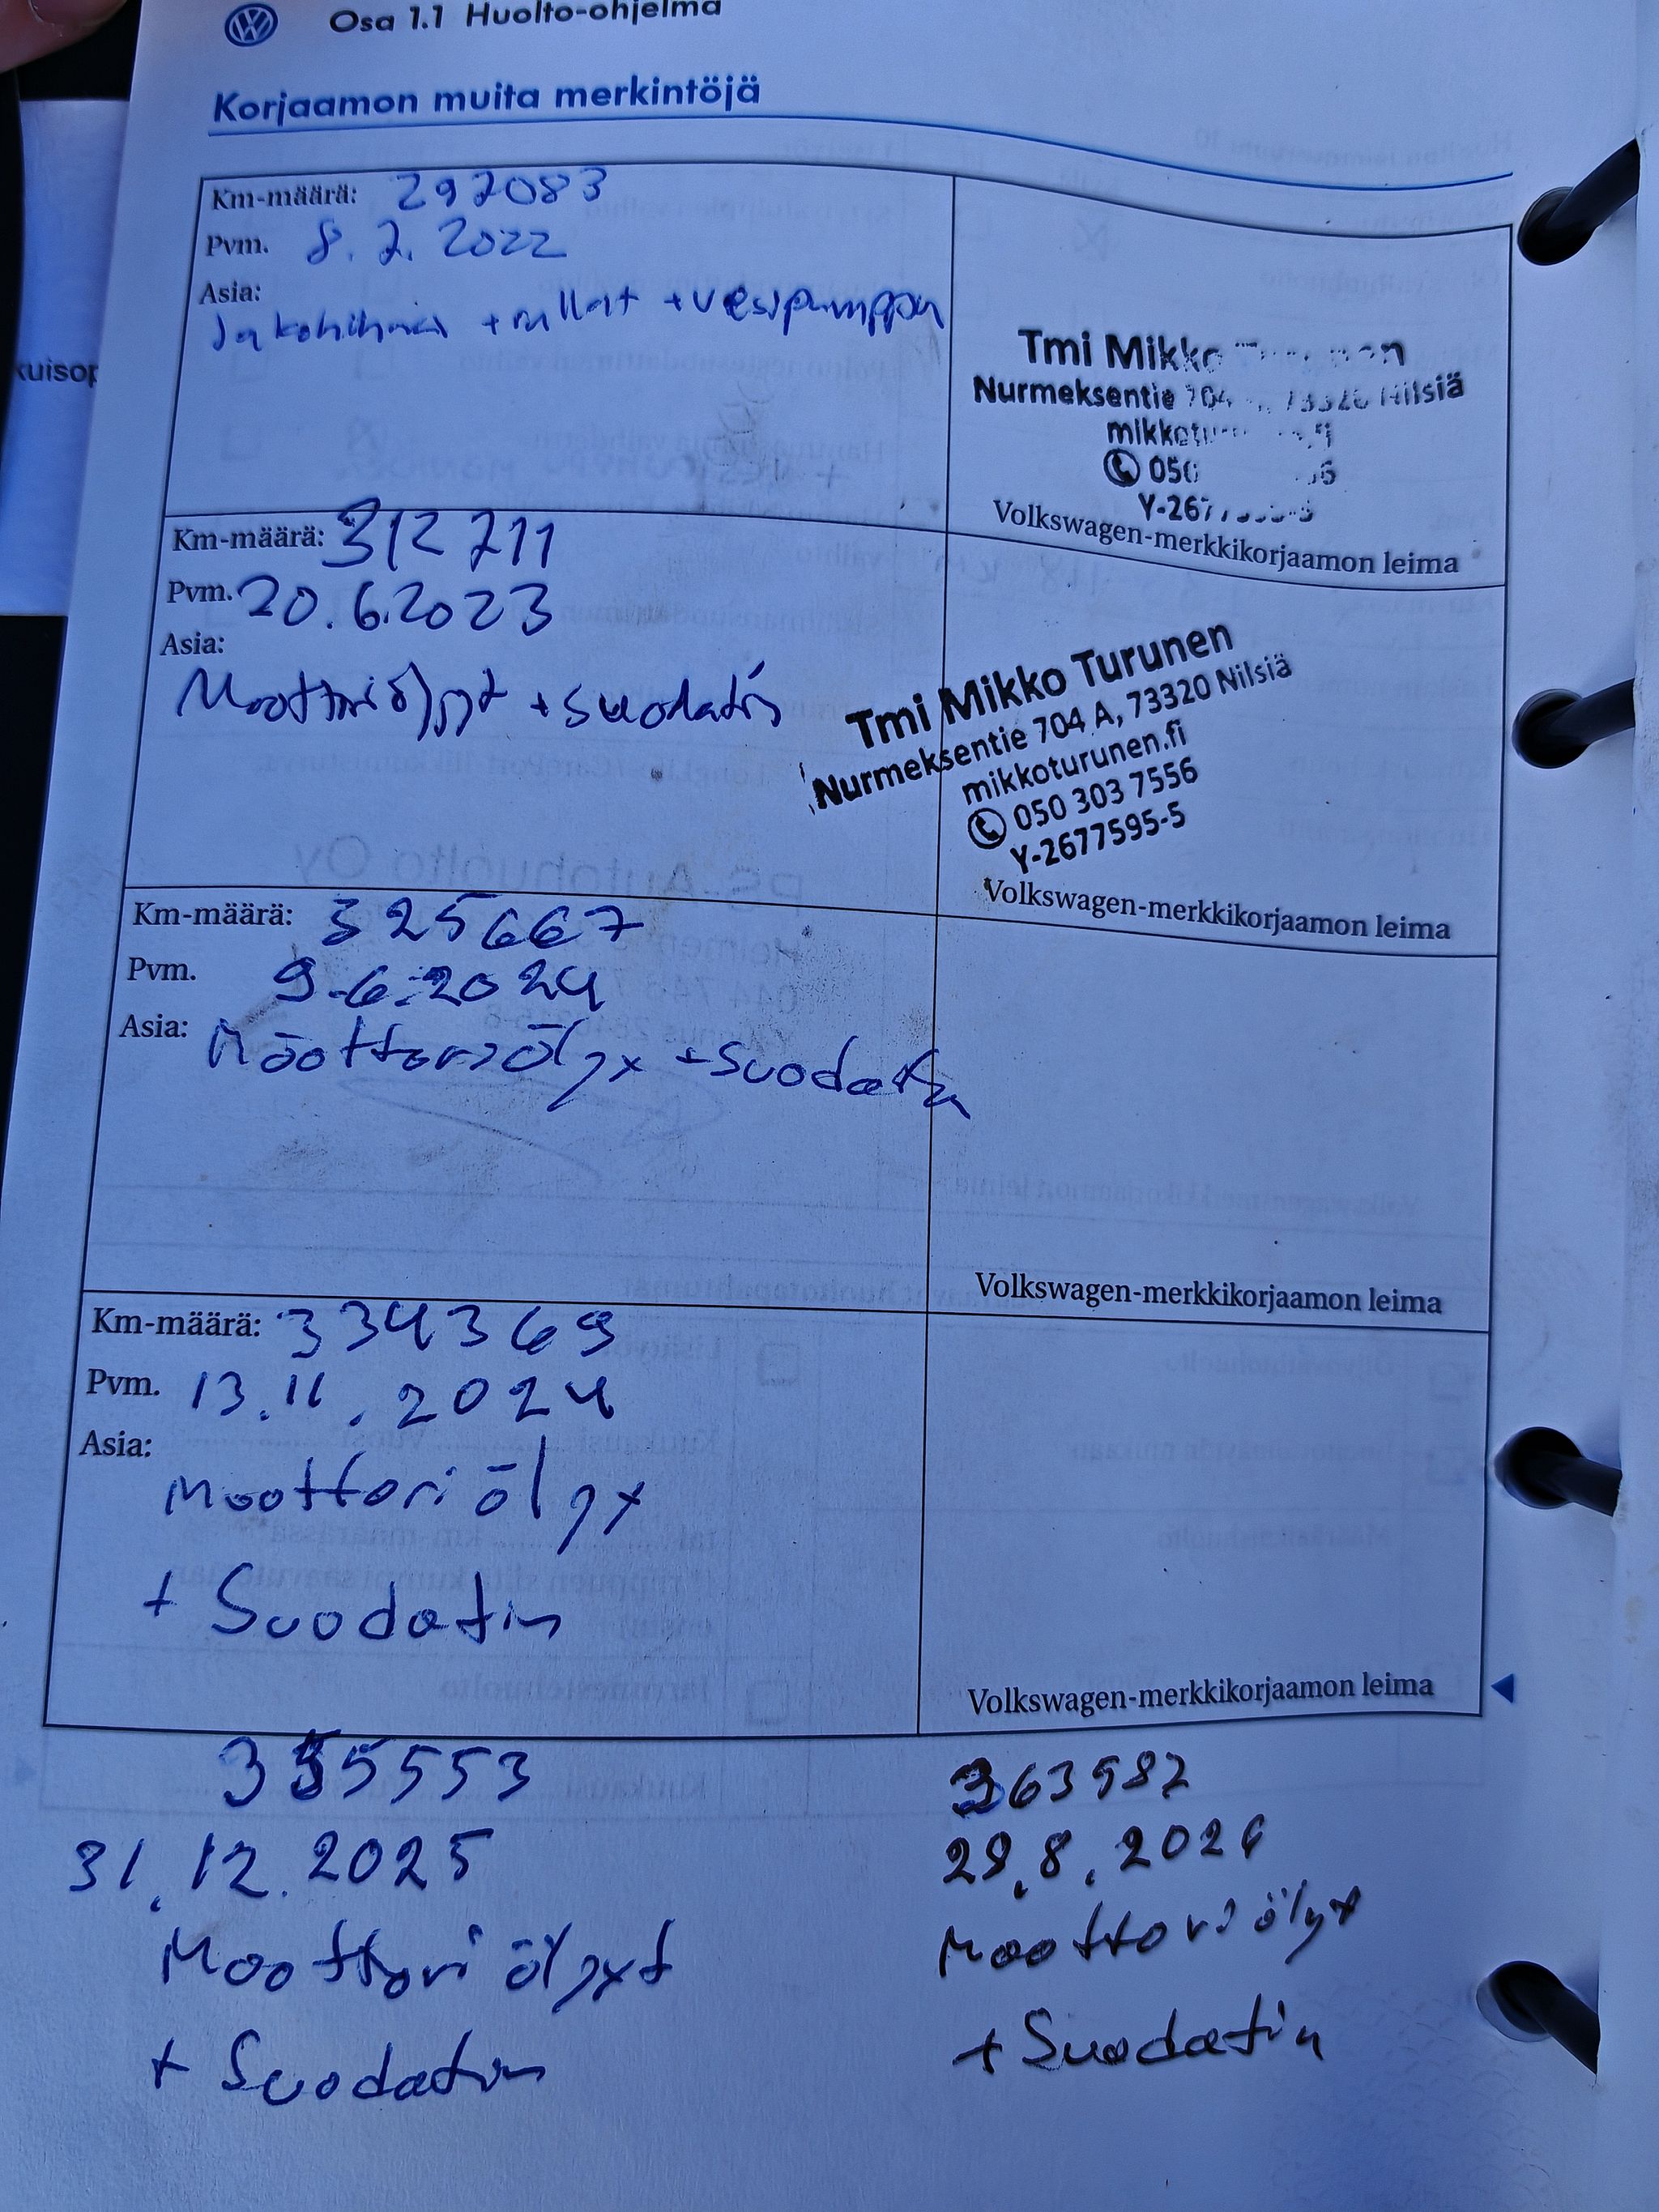 Osa 1.1 Huolto-ohjelma
Korjaamon muita merkintöjä
Km-määrä: 292083
Pvm. 8.2.2022
Asia:
Jakohihna + rullat + vesipumppu
Tmi Mikko
Nurmeksentie 704 Nilsiä
050
Volkswagen-merkkikorjaamon leima
Km-määrä: 312711
Pvm. 20.6.2023
Asia:
Moottoriöljyt + suodatin
Tmi Mikko Turunen
Nurmeksentie 704 A, 73320 Nilsiä
mikkoturunen.fi
050 303 7556
Y-2677595-5
Volkswagen-merkkikorjaamon leima
Km-määrä: 325667
Pvm. 9.6.2024
Asia: Moottoriöljy + suodatin
Volkswagen-merkkikorjaamon leima
Km-määrä: 334369
Pvm. 13.11.2024
Asia:
Moottoriöljy
+ Suodatin
Volkswagen-merkkikorjaamon leima
355553
31.12.2025
Moottoriöljyt
+ Suodatin
29.8.2026
Moottoriöljyt
+ Suodatin